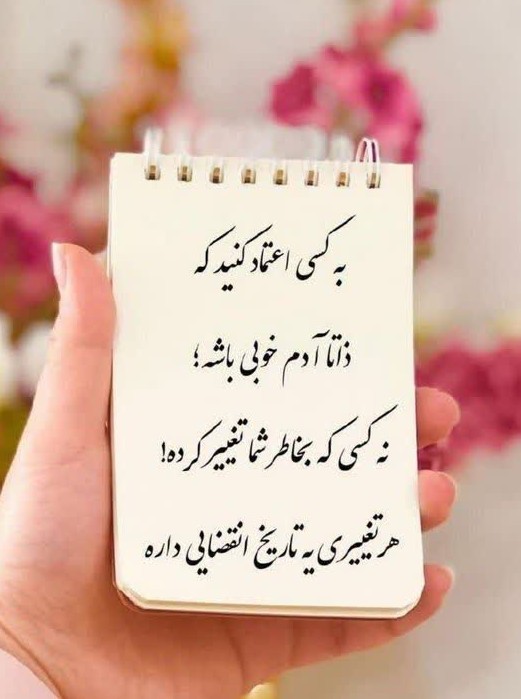 به کسی اعتماد کنید که
ذاتا آدم خوبی باشه؛
نه کسی که بخاطر شما تغییر کرده!
هر تغییری یه تاریخ انقضایی داره